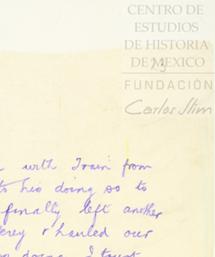 CENTRO DE
ESTUDIOS
DE HISTORIA
DE MEXICO
FUNDACIÓN
Carlos Slim
with Train from
his doing so to
finally left another
& hauled our